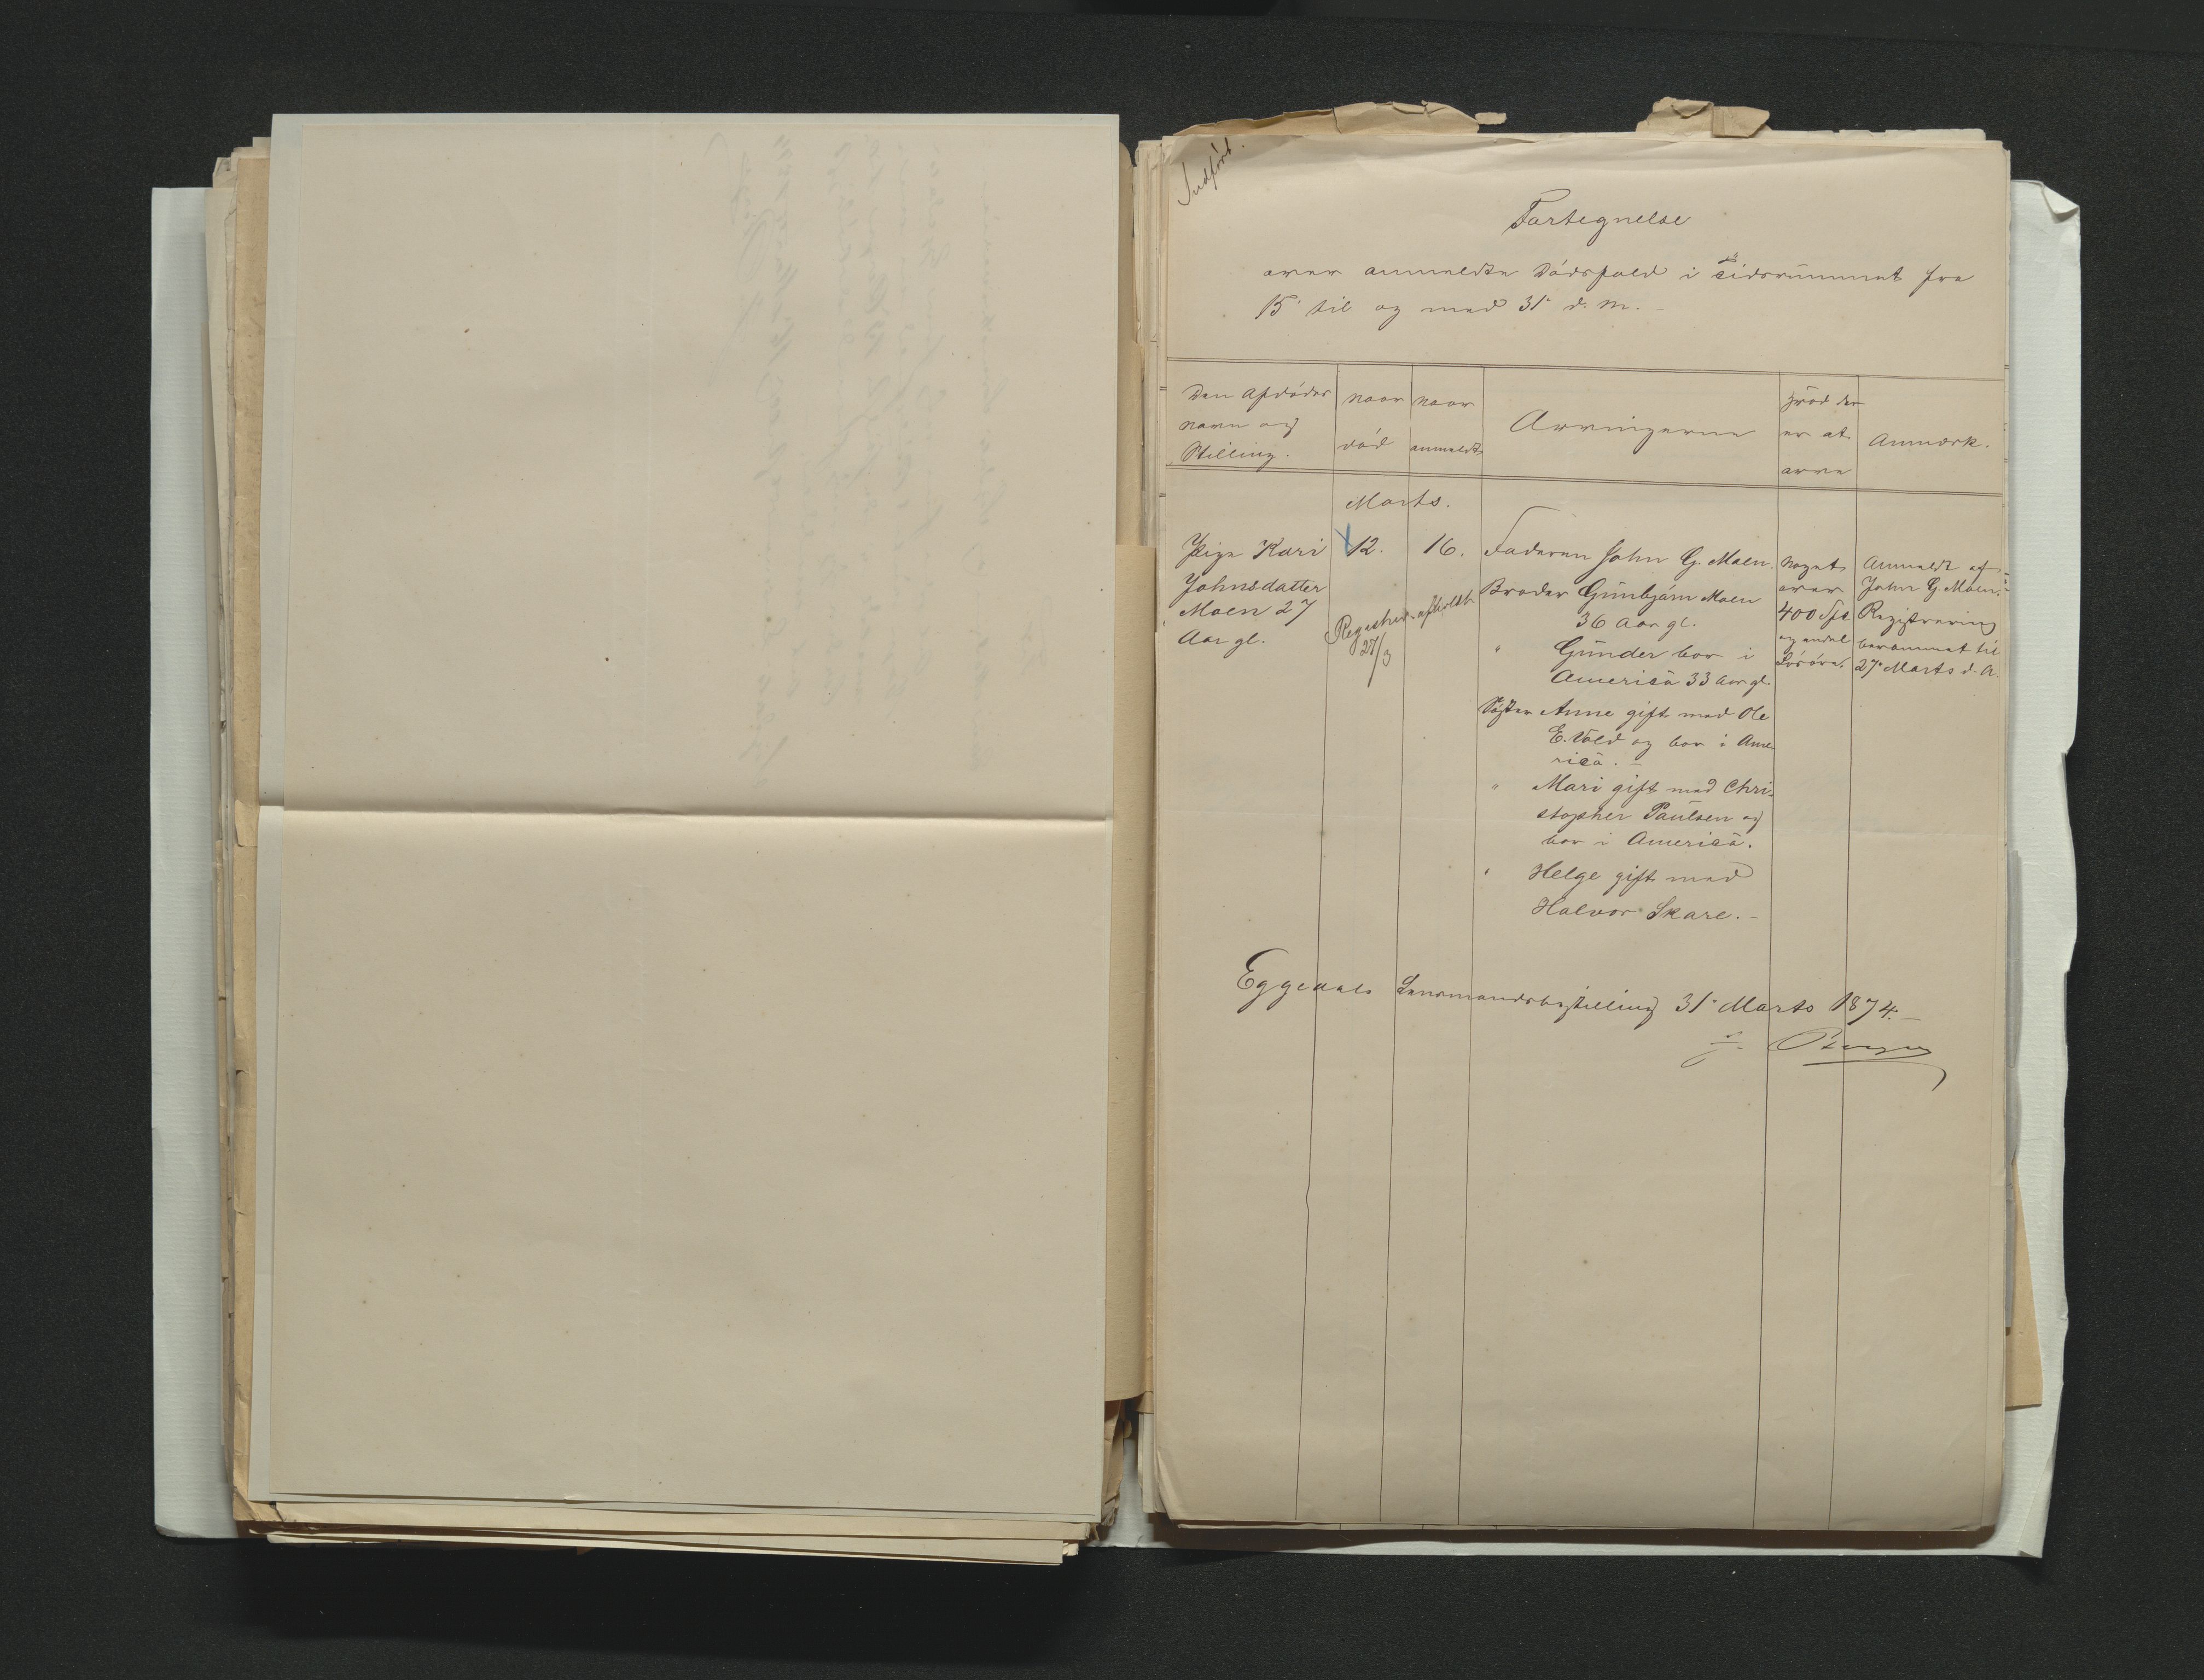 Indført.
Fortegnelse
over anmeldte Dödsfald i Tidsrummet fra
15' til og med 31' d. M. -
Den Afdödes
Navn og
Stilling.
Naar
död
Naar
anmeldt
Arvingerne
Hvad der
er at
arve
Anmærk.
Marts.
Pige Kari
Johnsdatter
Moen 27
Aar gl.
12.
16.
Registrr. afholdt
27/3
Faderen John G. Moen.
Broder Gunbjörn Moen
36 Aar gl.
" Gunder bor i
America 33 Aar gl.
Söster Anne gift med Ole
E. Vold og bor i Ame-
rica. -
" Mari gift med Chri-
stopher Paulsen og
bor i America.
" Helge gift med
Halvor Skare. -
Noget
over
400 Spd
og endel
Lösöre.
Anmeldt af
John G. Moen. -
Registrering
berammet til
27' Marts d. A.
Eggedals Lensmandsbestilling 31' Marts 1874. -